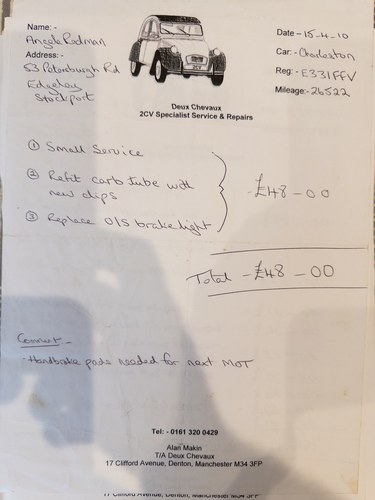 Name: - Angela Redman
Address: -
53 Petersburgh Rd
Edgeley
Stockport
Date - 15-4-10
Car: - Charleston
Reg: - E331FFV
Mileage: - 26522
Deux Chevaux
2CV Specialist Service & Repairs
① Small Service
② Refit carb tube with
new clips
③ Replace O/S brakelight
£48-00
Total - £48-00
Comment -
- Handbrake pads needed for next MOT
Tel: - 0161 320 0429
Alan Makin
T/A Deux Chevaux
17 Clifford Avenue, Denton, Manchester M34 3FP
17 Clifford Avenue, Denton, Manchester M34 3FP